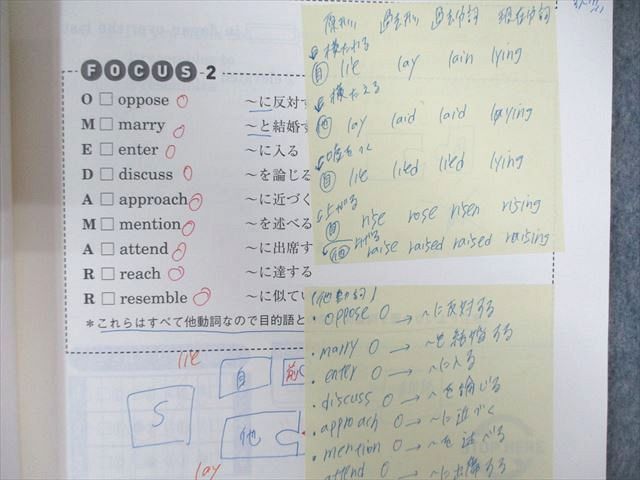 FOCUS-2
O □ oppose 〜に反対す
M □ marry 〜と結婚す
E □ enter 〜に入る
D □ discuss 〜を論じる
A □ approach 〜に近づく
M □ mention 〜を述べる
A □ attend 〜に出席す
R □ reach 〜に達する
R □ resemble 〜に似てい
*これらはすべて他動詞なので目的語と
lie
自
前
S
他
lay
原形 過去形 過去分詞 現在分詞
横たわる
自 lie lay lain lying
横たえる
他 lay laid laid laying
自 lie lied lied lying
上がる
自 rise rose risen rising
他 raise raised raised raising
(他動詞)
・oppose O → 〜に反対する
・marry O → 〜と結婚する
・enter O → 〜に入る
・discuss O → 〜を論じる
・approach O → 〜に近づく
・mention O → 〜を述べる
・attend O → 〜に出席する